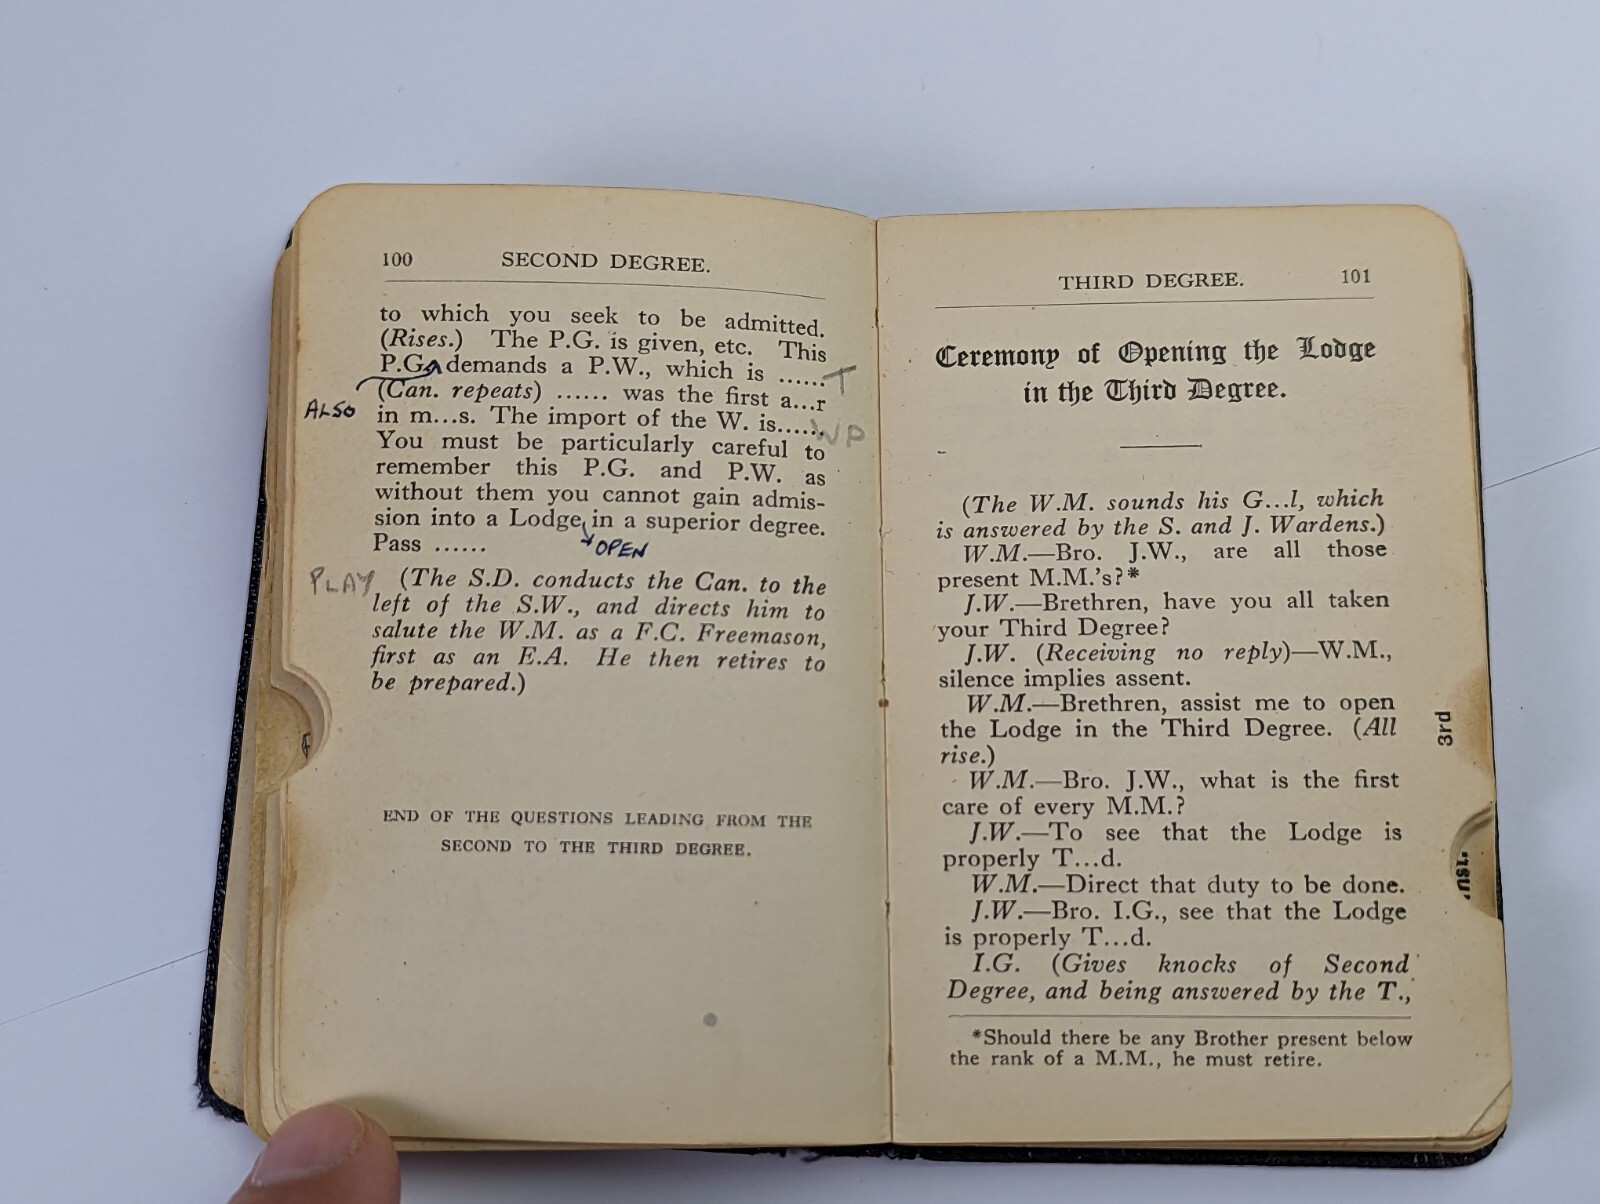 100 SECOND DEGREE.
to which you seek to be admitted.
(Rises.) The P.G. is given, etc. This
P.G. demands a P.W., which is ...... T
(Can. repeats) ...... was the first a...r
ALSO
in m...s. The import of the W. is...... WP
You must be particularly careful to
remember this P.G. and P.W. as
without them you cannot gain admis-
sion into a Lodge in a superior degree.
Pass ...... OPEN
PLAY (The S.D. conducts the Can. to the
left of the S.W., and directs him to
salute the W.M. as a F.C. Freemason,
first as an E.A. He then retires to
be prepared.)
END OF THE QUESTIONS LEADING FROM THE
SECOND TO THE THIRD DEGREE.
THIRD DEGREE. 101
Ceremony of Opening the Lodge
in the Third Degree.
(The W.M. sounds his G...l, which
is answered by the S. and J. Wardens.)
W.M.—Bro. J.W., are all those
present M.M.'s?*
J.W.—Brethren, have you all taken
your Third Degree?
J.W. (Receiving no reply)—W.M.,
silence implies assent.
W.M.—Brethren, assist me to open
the Lodge in the Third Degree. (All
rise.)
W.M.—Bro. J.W., what is the first
care of every M.M.?
J.W.—To see that the Lodge is
properly T...d.
W.M.—Direct that duty to be done.
J.W.—Bro. I.G., see that the Lodge
is properly T...d.
I.G. (Gives knocks of Second
Degree, and being answered by the T.,
*Should there be any Brother present below
the rank of a M.M., he must retire.
3rd